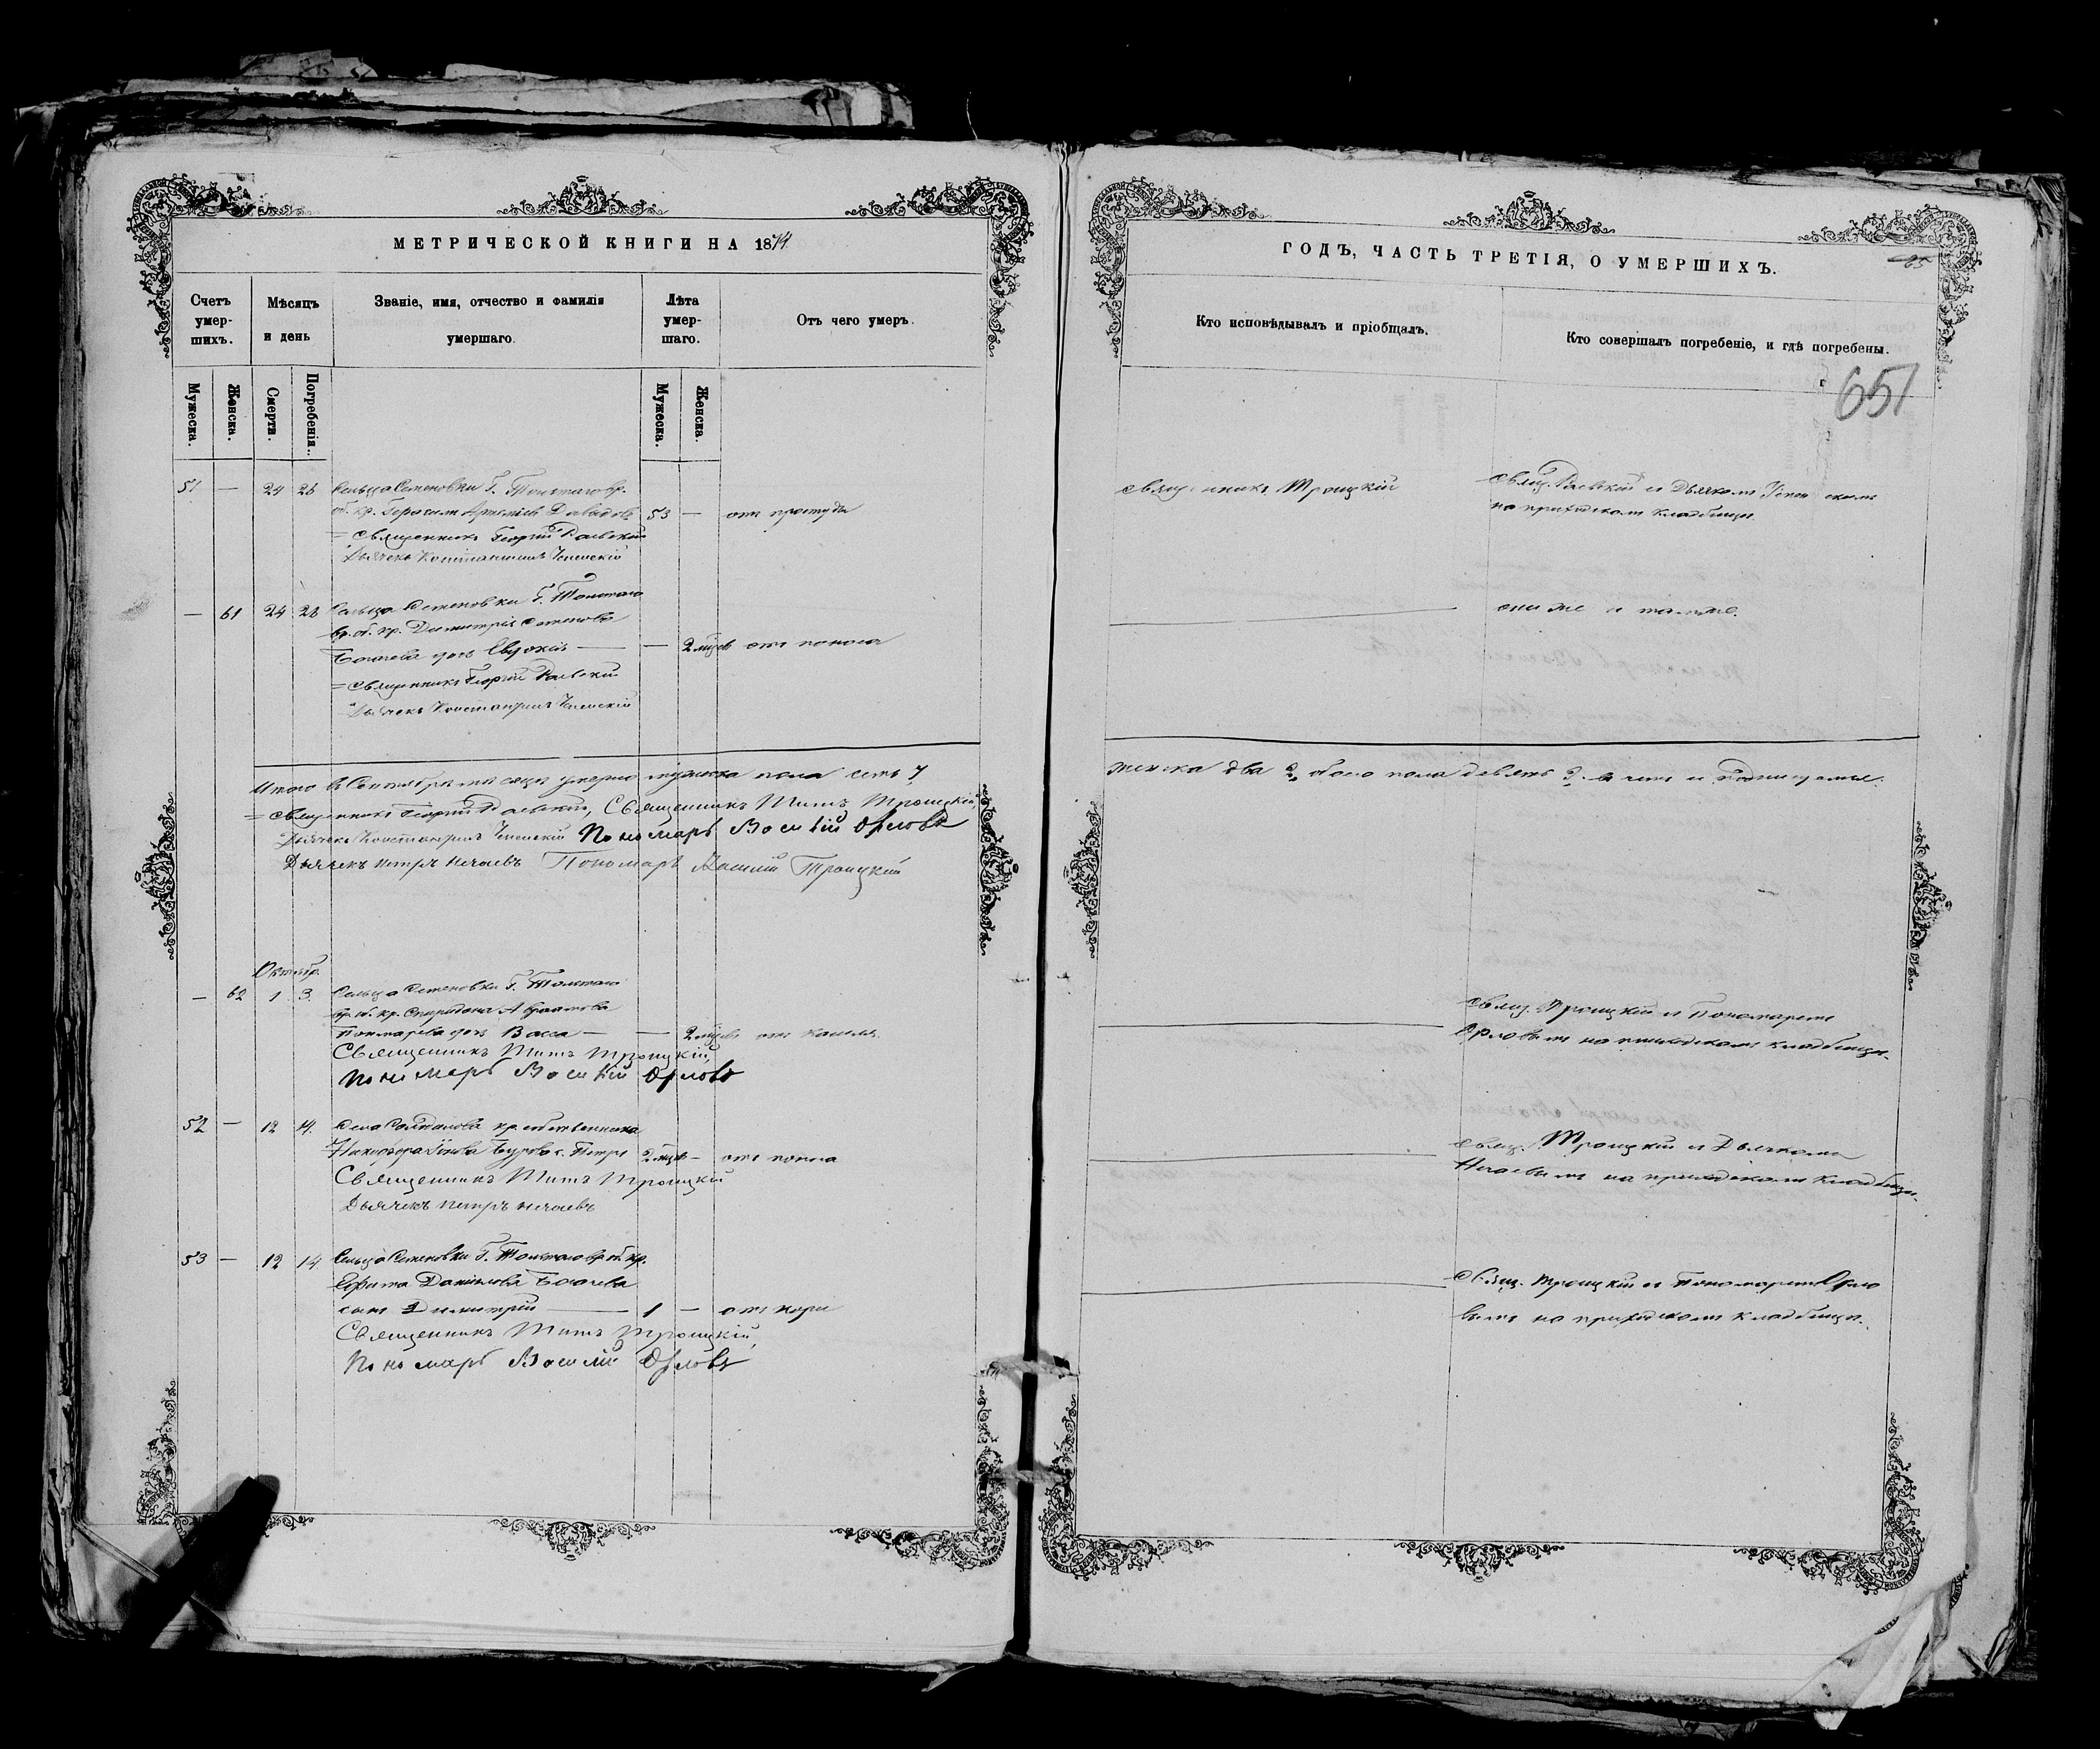 МЕТРИЧЕСКОЙ КНИГИ НА 1874
Счетъ умер- шихъ.
Мѣсяцъ и день
Званіе, имя, отчество и фамилія умершаго.
Лѣта умер- шаго.
Отъ чего умеръ.
Мужеска.
Женска.
Смерти.
Погребенія.
Мужеска.
Женска.
51 — 24 26 Сельца Семеновки Г. Толстаго вр.
об. кр. Герасим Давыдов 53 — отъ простуды
= Священникъ Георгій Раевскій
Дьячекъ Константинъ Успенскій
— 61 24 26 Сельца Семеновки Г. Толстаго
вр. об. кр. Димитрія Семенова
дочь Евдокія — — 2 мцевъ отъ поноса
= Священникъ Георгій Раевскій
Дьячекъ Константинъ Успенскій
Итого в Сентябрѣ месяцѣ умерло мужеска пола семь 7
= Священникъ Георгій Раевскій, Священникъ Титъ Троицкій,
Дьячекъ Константинъ Успенскій Пономарь Василій Орловъ
Дьячекъ Петръ Нечаевъ Пономарь Василій Троицкій
Октябр.
— 62 1 3. Сельца Семеновки Г. Толстаго
вр. об. кр. Спиридона Аврамова
Пономарева дочь Васса — — 2 мцевъ отъ кашля.
Священникъ Титъ Троицкій,
Пономарь Василій Орловъ
52 — 12 14. Села кр. собственника
Никифора Бурова с. Петръ 2 мцев — отъ поноса
Священникъ Титъ Троицкій
Дьячекъ Петръ Нечаевъ
53 — 12 14 Сельца Семеновки Г. Толстаго вр. об. кр.
Ефима Данилова
сынъ Димитрій — 1 — отъ кори
Священникъ Титъ Троицкій,
Пономарь Василій Орловъ
ГОДЪ, ЧАСТЬ ТРЕТІЯ, О УМЕРШИХЪ.
Кто исповѣдывалъ и пріобщалъ.
Кто совершалъ погребеніе, и гдѣ погребены.
651
Священникъ Троицкій
Свящ. Раевскій и Дьячкомъ Успенскимъ
на приходскомъ кладбищѣ.
они же и тамже.
женска два 2, обоего пола девять 9. въ чемъ и подписуемся.
Свящ. Троицкій и Пономаремъ
Орловымъ на приходскомъ кладбищѣ.
Свящ. Троицкій и Дьячкомъ
Нечаевымъ на приходскомъ кладбищѣ.
Свящ. Троицкій и Пономаремъ Орло
вымъ на приходскомъ кладбищѣ.